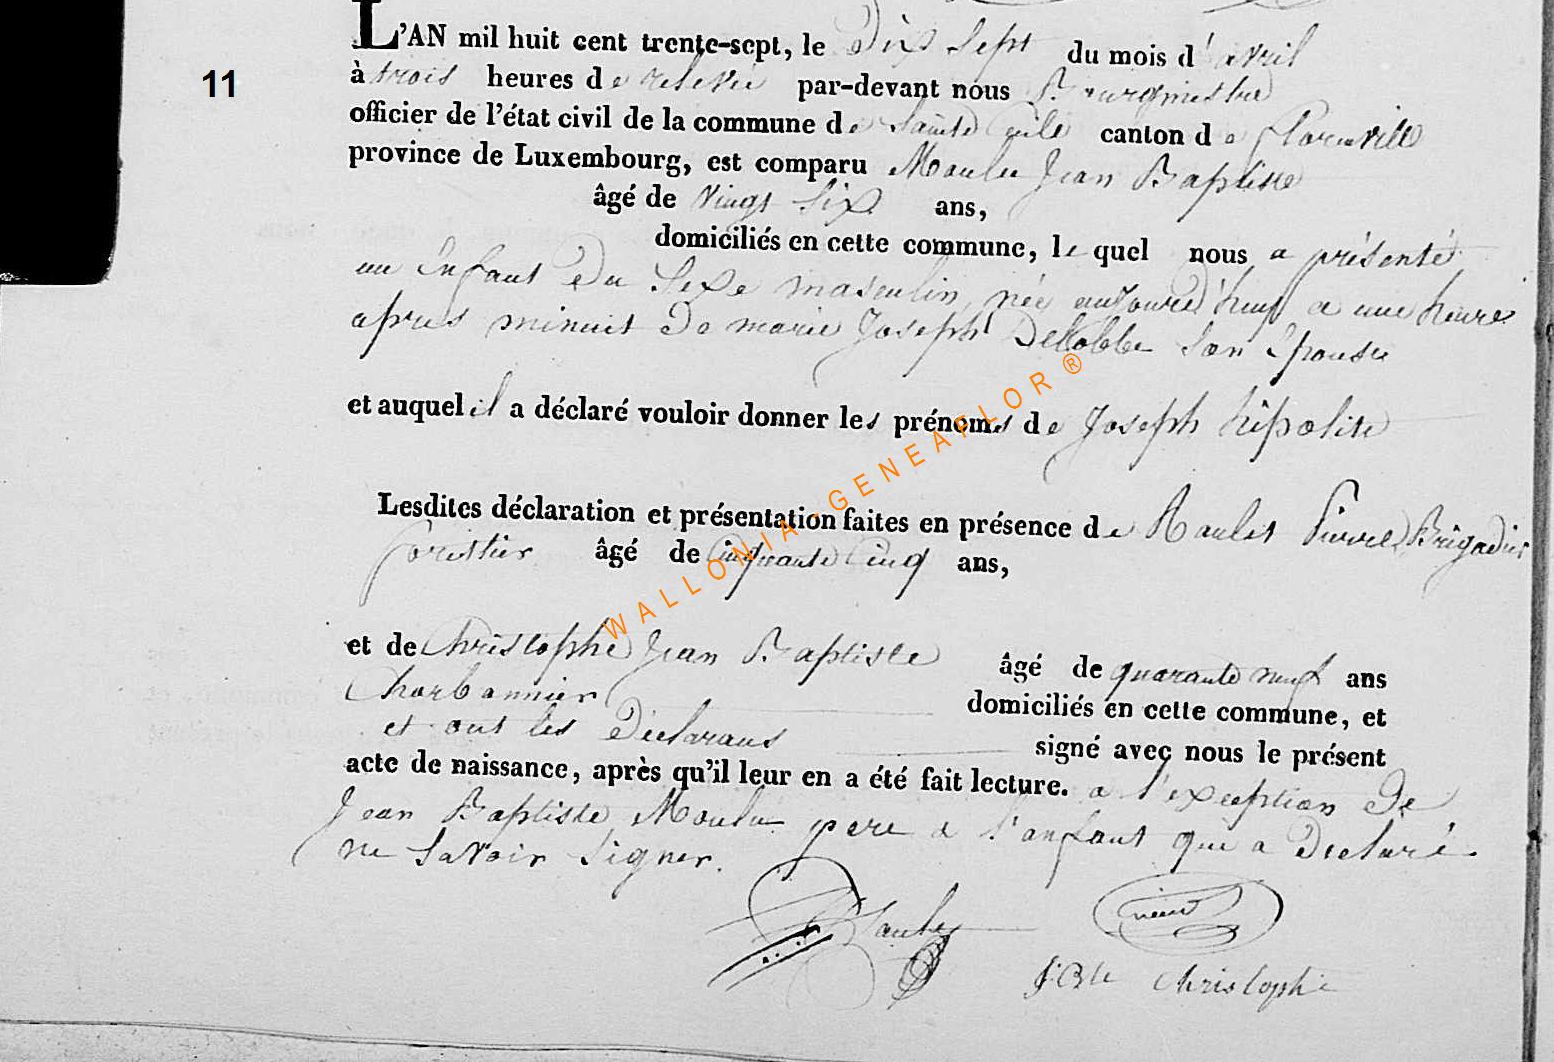 L'AN mil huit cent trente-sept, le Dix Sept du mois d'avril
11
à trois heures de relevée par-devant nous Bourgmestre
officier de l'état civil de la commune de Sainte Cécile canton de Florenville
province de Luxembourg, est comparu Jean Baptiste
âgé de Vingt Six ans,
domiciliés en cette commune, le quel nous a présenté
un Enfant Du Sexe masculin, née aujourd'huy a une heure
apres minuit De marie Joseph Delobbe Son Epouse
et auquel il a déclaré vouloir donner les prénoms de Joseph hipolite
Lesdites déclaration et présentation faites en présence de Pierre Brigadier
forestier âgé de Cinquante Cinq ans,
et de Christophe Jean Baptiste âgé de quarante neuf ans
Charbonnier domiciliés en cette commune, et
et ont les Declarans signé avec nous le présent
acte de naissance, après qu'il leur en a été fait lecture. a l'exception De
Jean Baptiste pere a l'anfant que a Declaré
ne Savoir Signer.
J: Bte Christophe
WALLONIA-GENEAFLOR ®